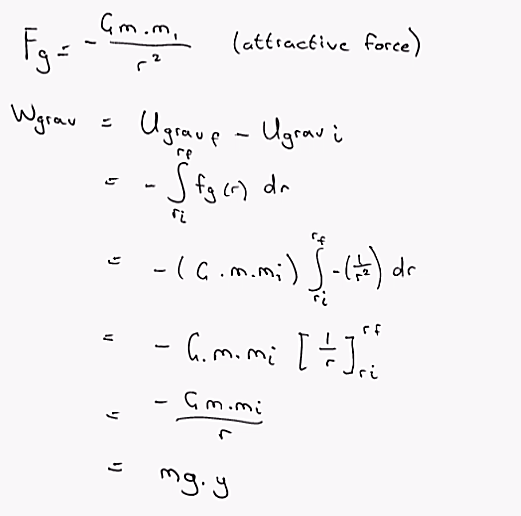 Fg = - Gm.m₁ / r² (attractive force)
Wgrav = Ugravf - Ugravi
= - ∫ri^rf fg(r) dr
= -(G.m.mi) ∫ri^rf -(1/r²) dr
= - G.m.mi [1/r]ri^rf
= - Gm.mi / r
= mg.y